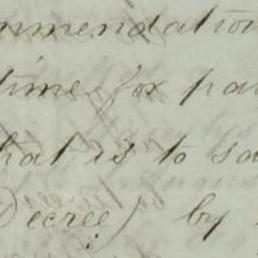 mmendation
time for pa
hat is to sa
Decree) by